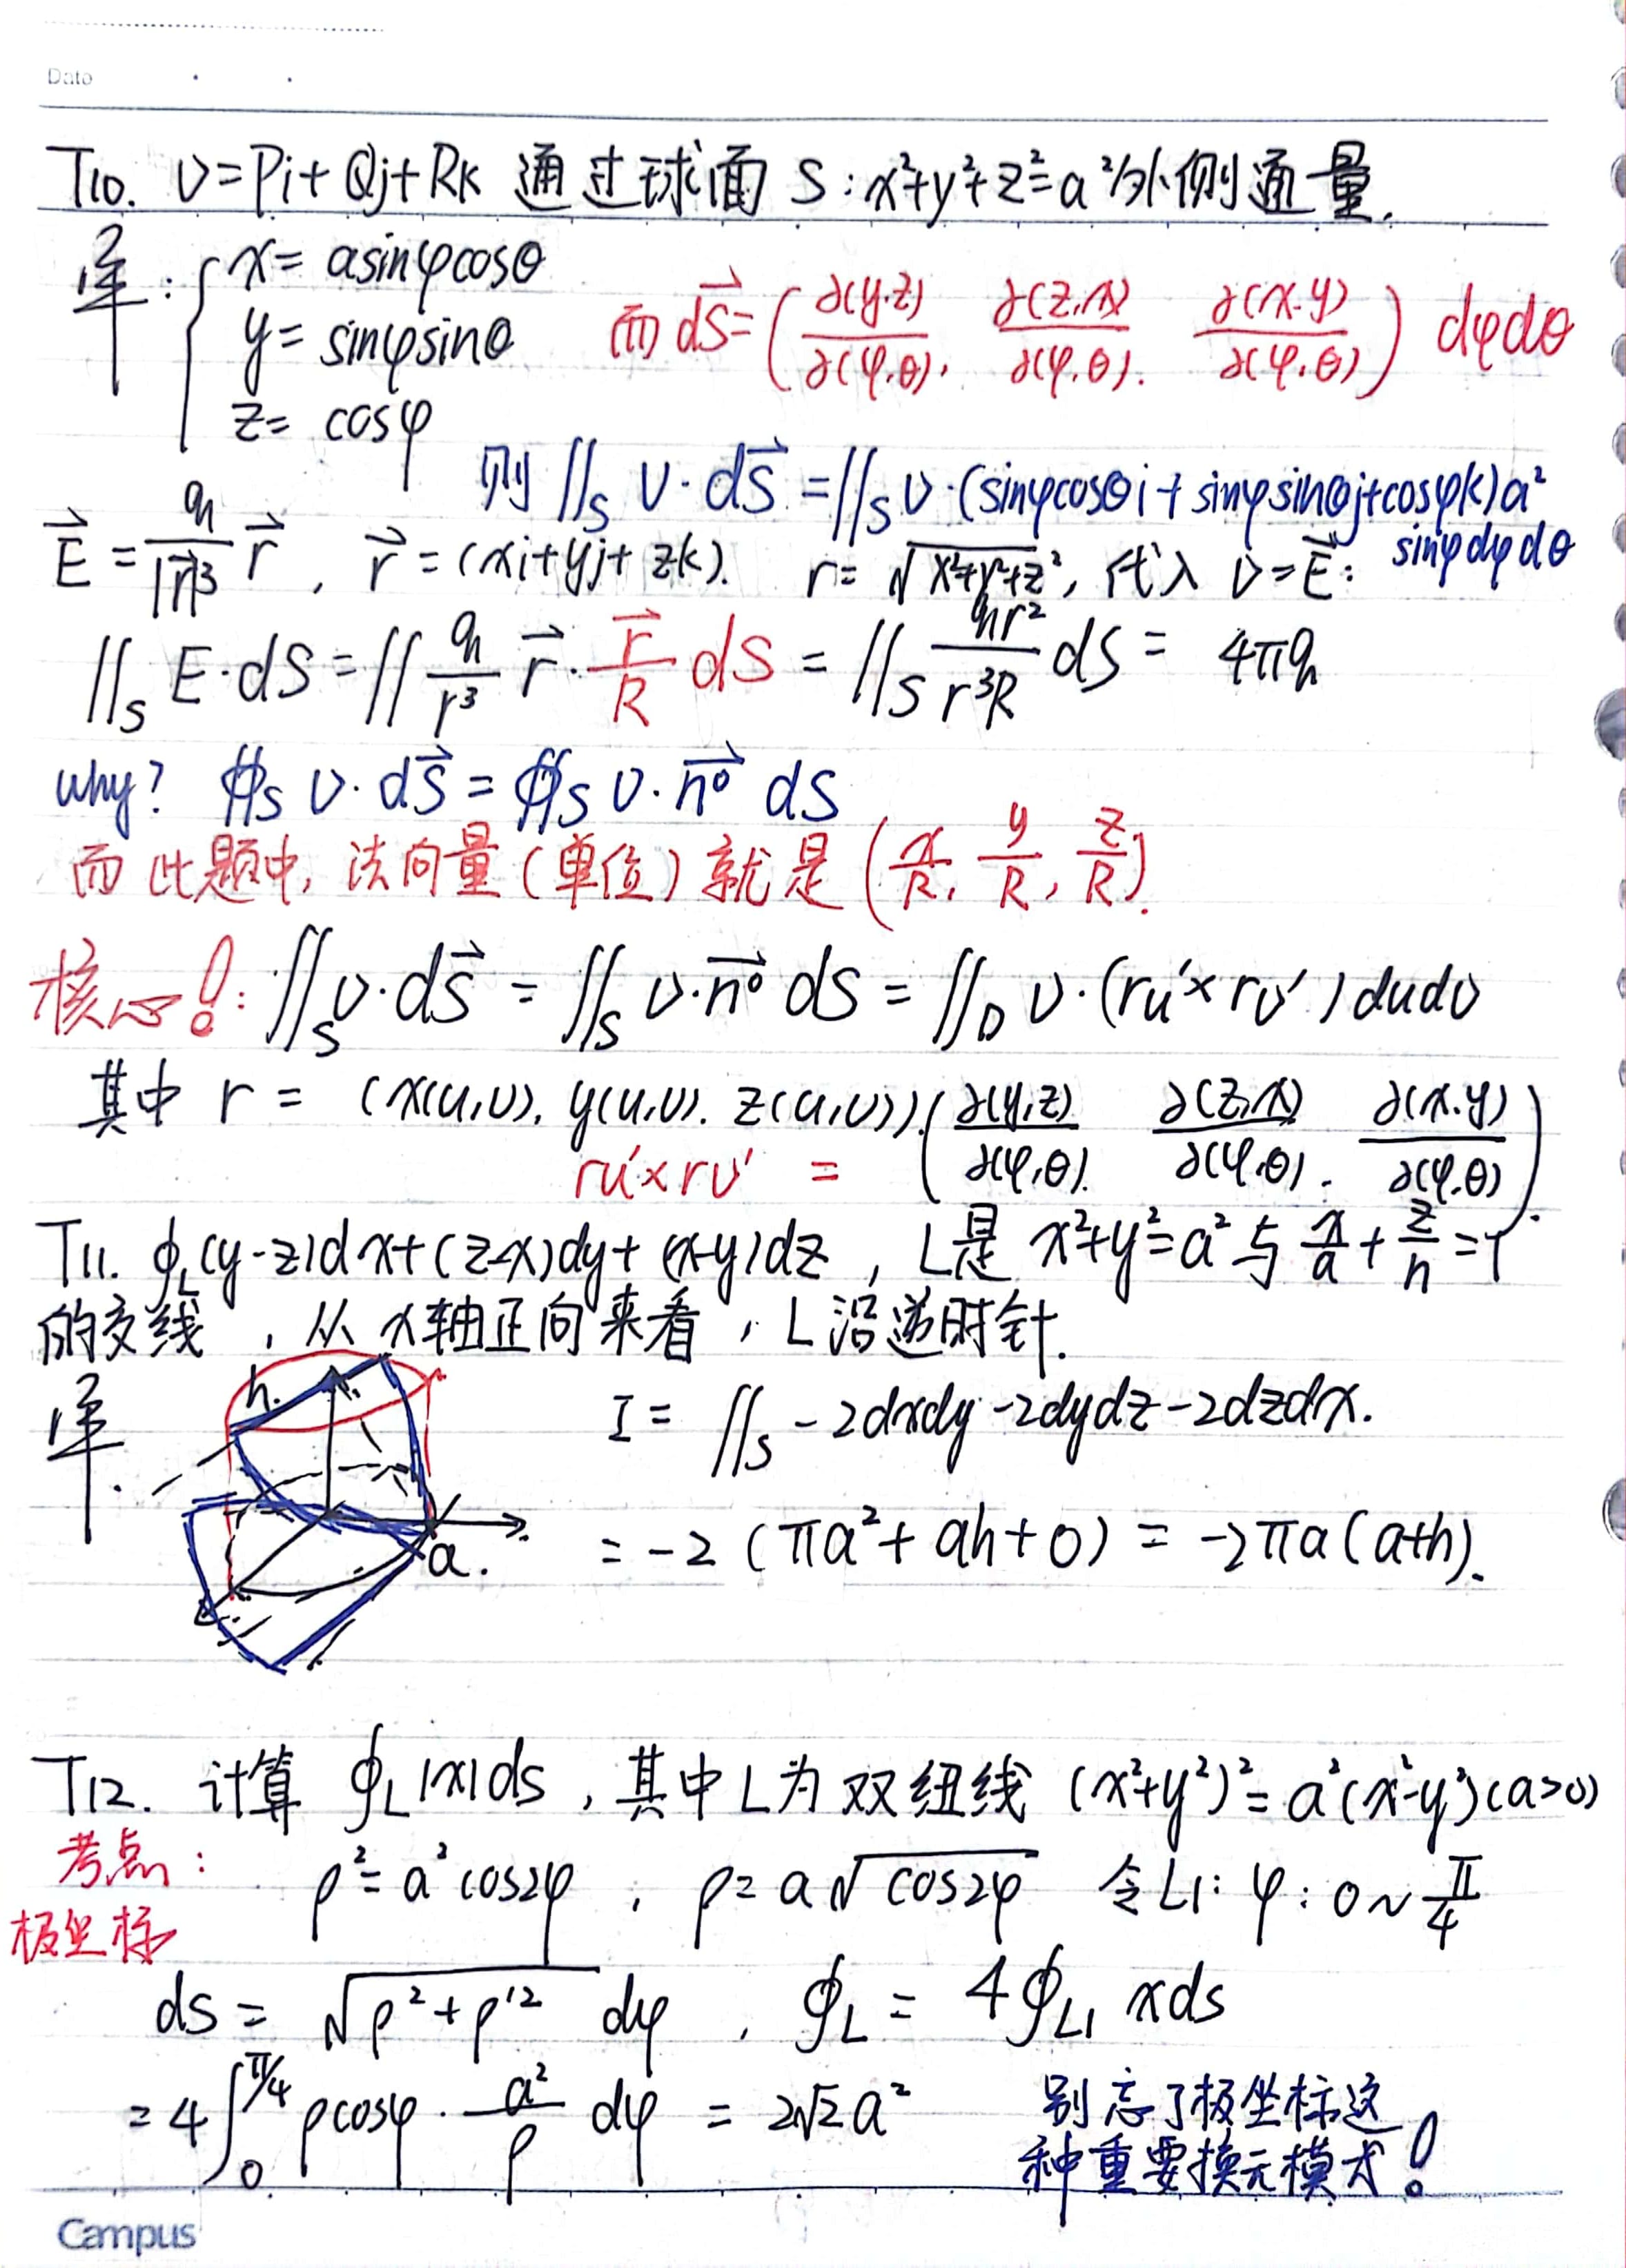 Date
T10. V=Pi+Qj+Rk 通过球面 S:x²+y²+z²=a²外侧通量.
解: { x= asinφcosθ
y= sinφsinθ 而 dS⃗=(∂(y,z)/∂(φ,θ), ∂(z,x)/∂(φ,θ), ∂(x,y)/∂(φ,θ)) dφdθ
z= cosφ
则 ∬_S V·dS⃗ =∬_S V·(sinφcosθi+sinφsinθj+cosφk)a²
sinφdφdθ
E⃗ = q/|r⃗|³ r⃗, r⃗=(xi+yj+zk). r=√(x²+y²+z²), 代入 V=E⃗:
∬_S E·dS =∬ q/r³ r⃗·r⃗/R dS = ∬_S qr²/r³R dS = 4πq
why? ∯_S V·dS⃗ = ∯_S V·n⃗⁰ dS
而此题中, 法向量(单位)就是(x/R, y/R, z/R).
核心!: ∬_S V·dS⃗ = ∬_S V·n⃗⁰ dS = ∬_D V·(ru'×rv')dudv
其中 r = (x(u,v), y(u,v), z(u,v)).
ru'×rv' = (∂(y,z)/∂(φ,θ), ∂(z,x)/∂(φ,θ), ∂(x,y)/∂(φ,θ)).
T11. ∮_L(y-z)dx+(z-x)dy+(x-y)dz, L是 x²+y²=a² 与 x/a+z/h=1
的交线, 从x轴正向来看, L沿逆时针.
解. I = ∬_S -2dxdy-2dydz-2dzdx.
h.
a.
= -2 (πa²+ah+0) = -2πa(a+h).
T12. 计算 ∮_L|x|ds, 其中L为双纽线 (x²+y²)²=a²(x²-y²)(a>0)
考点: ρ²=a²cos2φ, ρ=a√cos2φ 令L1: φ: 0~π/4
极坐标
ds = √(ρ²+ρ'²) dφ, ∮_L = 4∮_L1 xds
= 4∫_0^π/4 ρcosφ·a²/ρ dφ = 2√2a²
别忘了极坐标这
种重要换元模式!
Campus